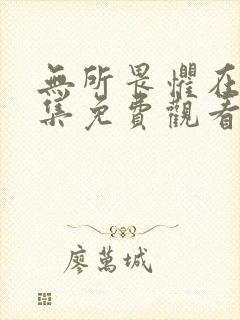 無所畏懼在
集免費觀看
廖萬城